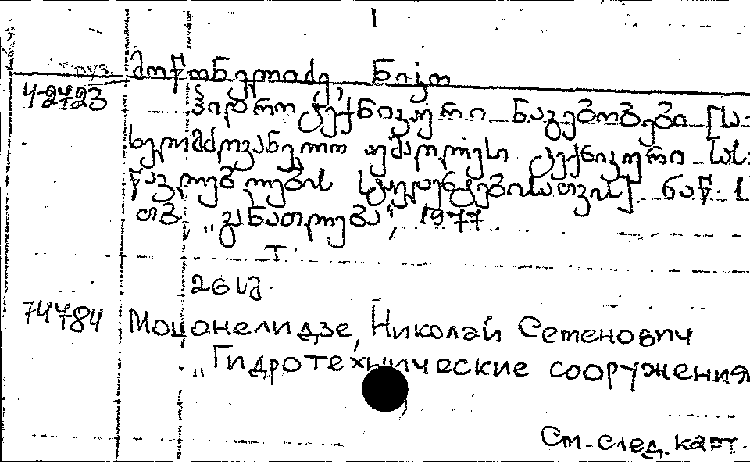 1
груз.
მოწონელიძე, ნიკო
4-2423
ჰიდროტექნიკური ნაგებობები [სა-
ხელმძღვანელო უმაღლესი ტექნიკური სას-
წავლებლების სტუდენტებისათვის] ნაწ. 1
თბ. „განათლება“, 1977
Т.
261 გვ.
74784 Моцонелидзе, Николай Семенович
„Гидротехнические сооружения
См. след. карт.